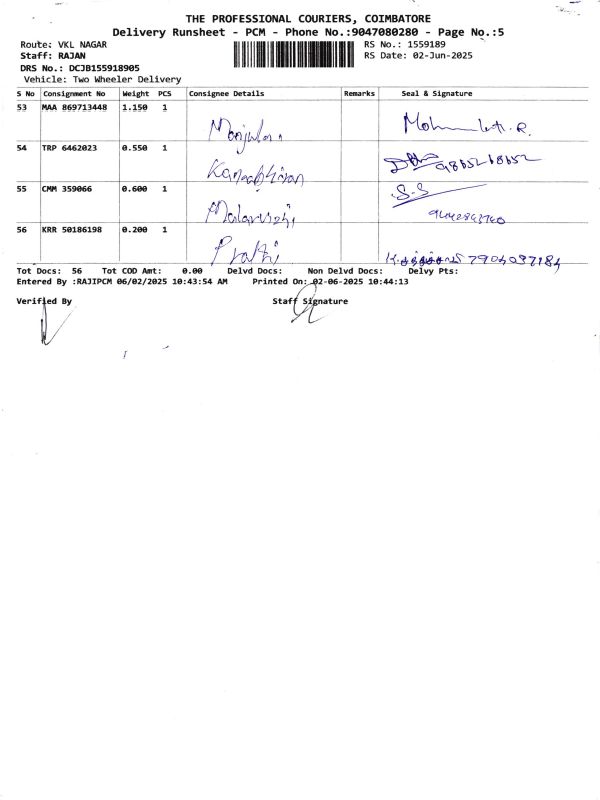 THE PROFESSIONAL COURIERS, COIMBATORE
Delivery Runsheet - PCM - Phone No.:9047080280 - Page No.:5
Route: VKL NAGAR RS No.: 1559189
Staff: RAJAN RS Date: 02-Jun-2025
DRS No.: DCJB155918905
Vehicle: Two Wheeler Delivery
S No Consignment No Weight PCS Consignee Details Remarks Seal & Signature
53 MAA 869713448 1.150 1
54 TRP 6462023 0.550 1
55 CMM 359066 0.600 1 S.S
56 KRR 50186198 0.200 1 Prathi 7904037184
Tot Docs: 56 Tot COD Amt: 0.00 Delvd Docs: Non Delvd Docs: Delvy Pts:
Entered By :RAJIPCM 06/02/2025 10:43:54 AM Printed On: 02-06-2025 10:44:13
Verified By Staff Signature